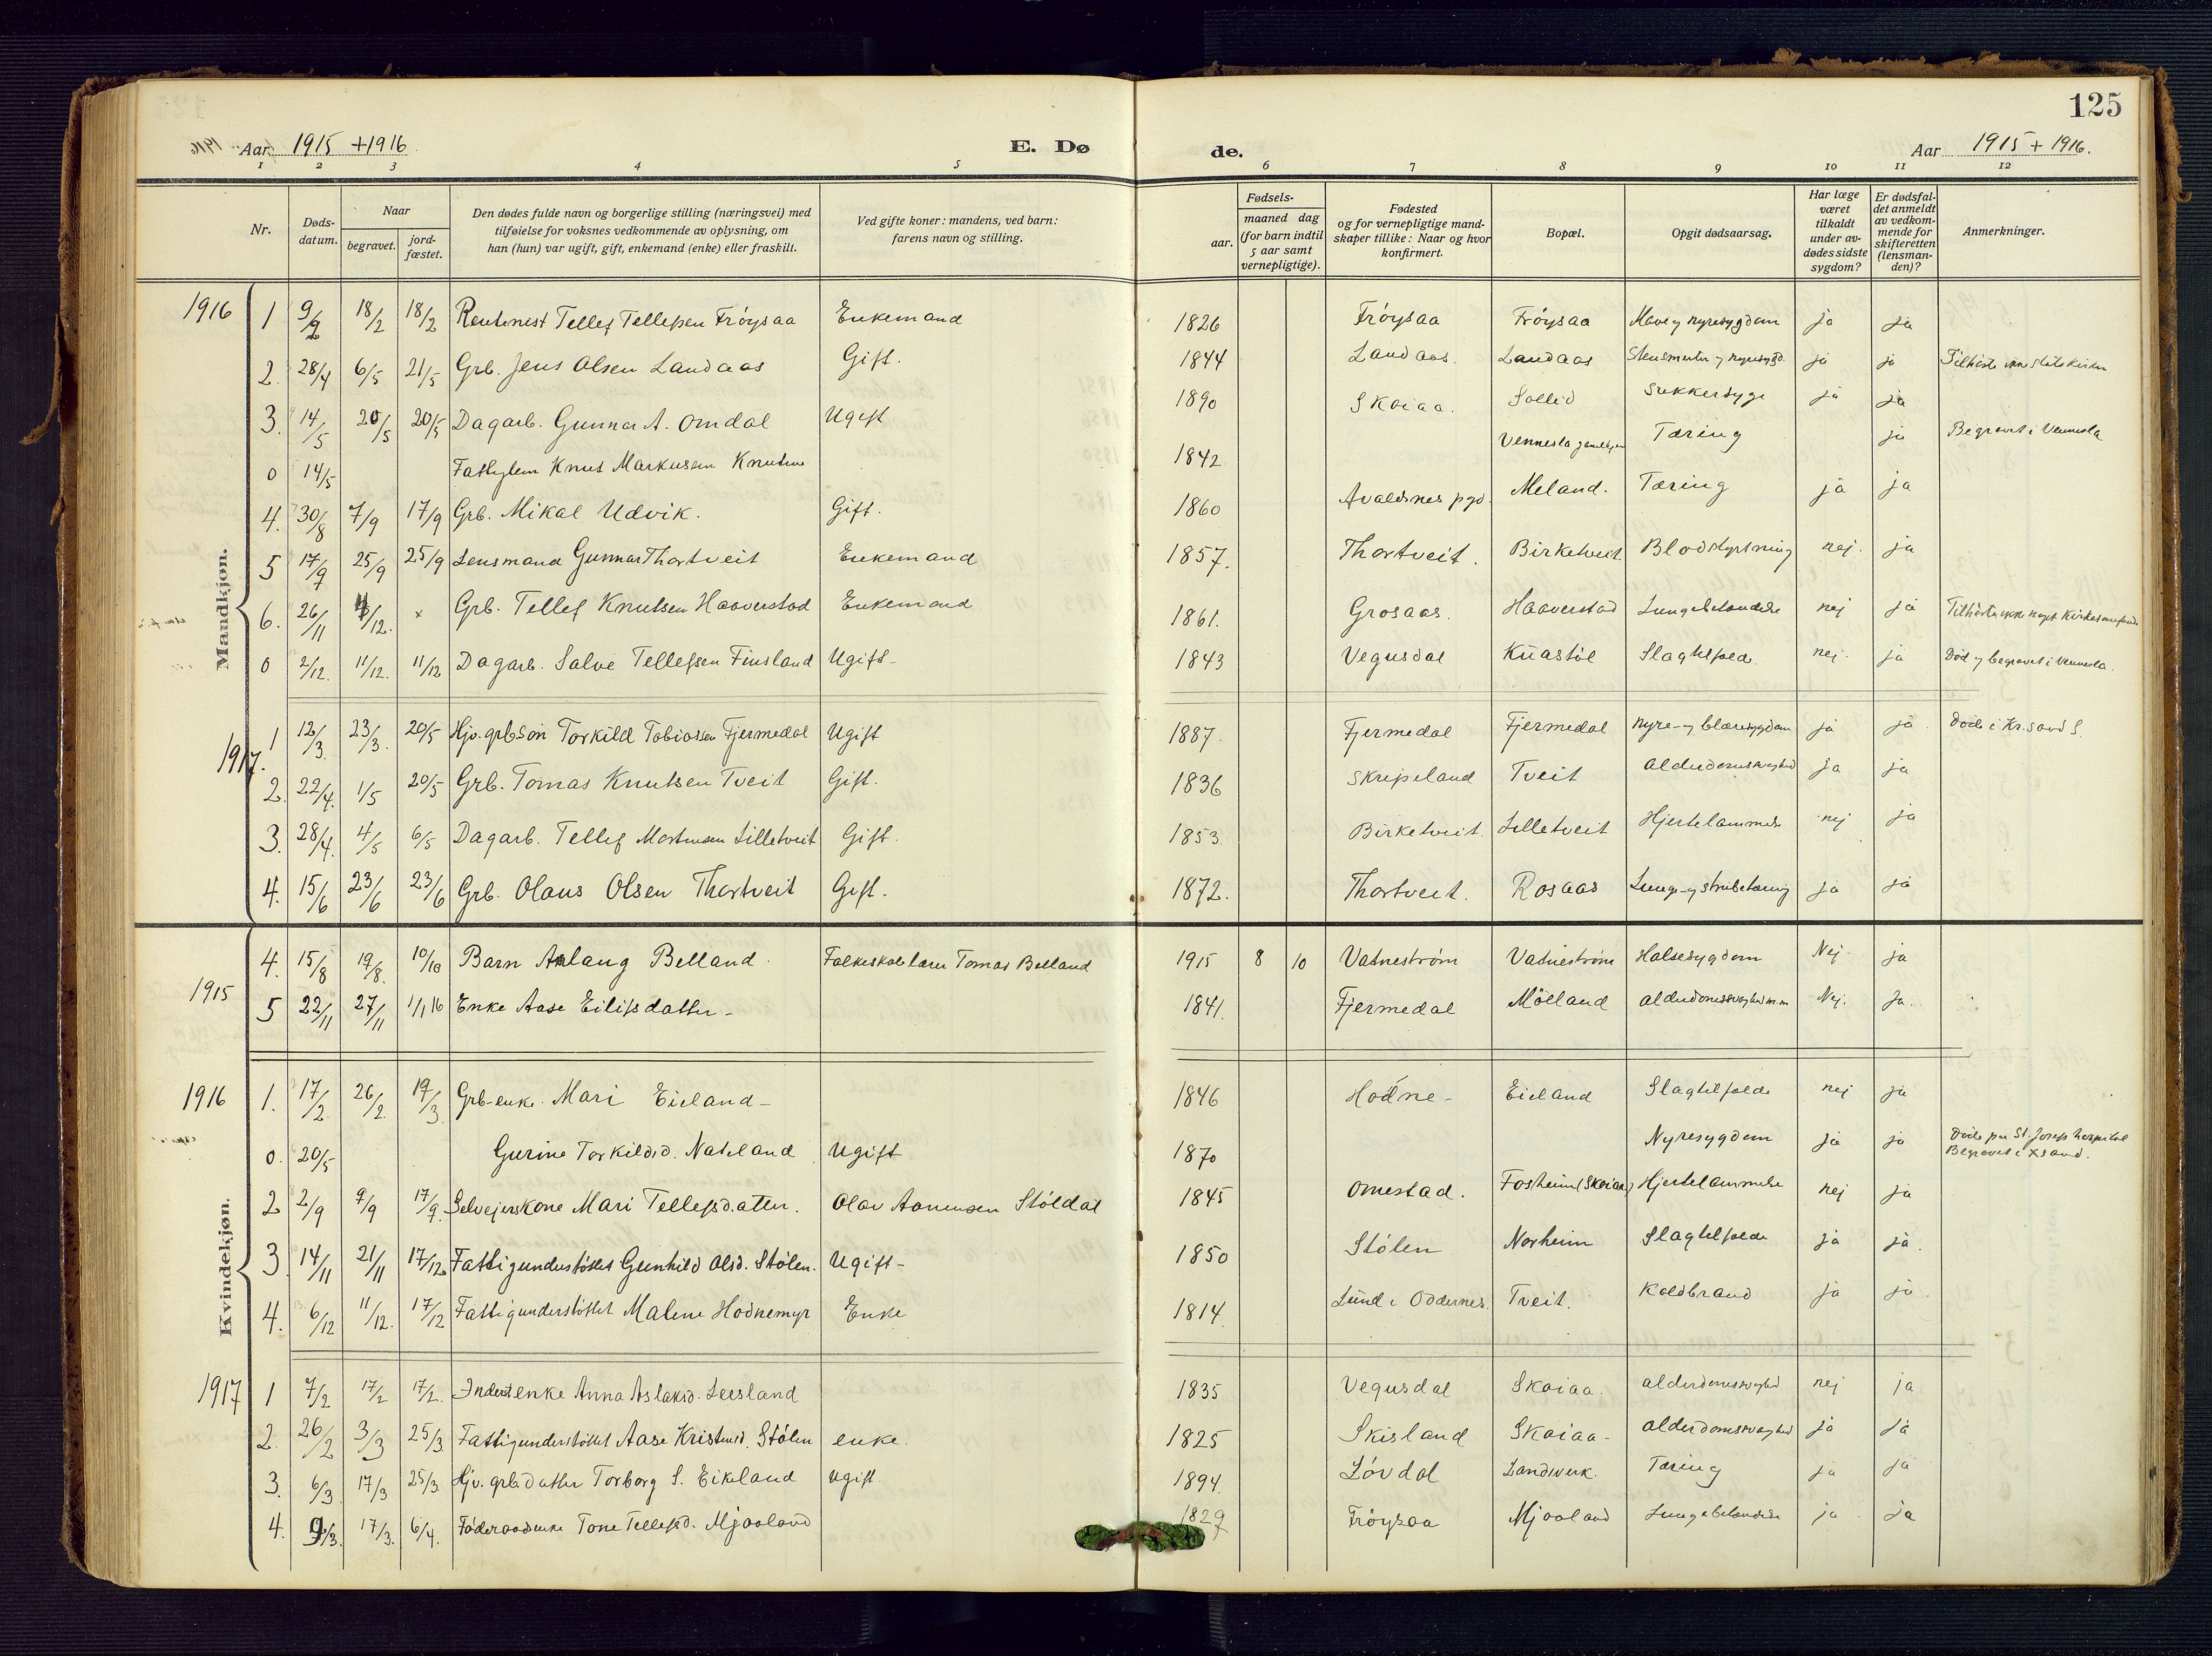 125
Aar 1915 + 1916 E. Dø de. Aar 1915 + 1916.
1 2 3 4 5 6 7 8 9 10 11 12
Nr.
Døds-
datum.
Naar
begravet.
jord-
fæstet.
Den dødes fulde navn og borgerlige stilling (næringsvei) med
tilføielse for voksnes vedkommende av oplysning, om
han (hun) var ugift, gift, enkemand (enke) eller fraskilt.
Ved gifte koner: mandens, ved barn:
farens navn og stilling.
aar.
Fødsels-
maaned dag
(for barn indtil
5 aar samt
vernepligtige).
Fødested
og for vernepligtige mand-
skaper tillike: Naar og hvor
konfirmert.
Bopæl.
Opgit dødsaarsag.
Har læge
været
tilkaldt
under av-
dødes sidste
sygdom?
Er dødsfal-
det anmeldt
av vedkom-
mende for
skifteretten
(lensman-
den)?
Anmerkninger.
Mandkjøn.
1916 1 9/2 18/2 18/2 Tellef Tellefsen Frøysaa Enkemand 1826 Frøysaa Frøysaa Mave og nyresygdom ja ja
2. 28/4 6/5 21/5 Grb. Jens Olsen Landaas Gift. 1844 Landaas. Landaas ja ja
3. 14/5 20/5 20/5 Dagarb. Gunnar A. Omdal Ugift 1890 Skaiaa. Sollid Sukkersyge ja ja
0 14/5 Knut Markussen Knutsen 1842 Vennesla Tæring ja Begravet i Vennesla
4. 30/8 7/9 17/9 Grb. Mikal Udvik. Gift. 1860 Avaldsnes pgd. Meland. Tæring ja ja
5 17/9 25/9 25/9 Lensmand Gunnar Thortveit Enkemand 1857. Thortveit. Birketveit Blodstyrtning nej. ja
6. 26/11 4/12. x Grb. Tellef Knutsen Haaverstad Enkemand 1861. Grosaas. Haaverstad Lungebetændelse nej ja Tilhørte ikke noget Kirkesamfund
0 2/12. 11/12. 11/12 Dagarb. Salve Tellefsen Finsland Ugift- 1843 Vegusdal Kúastøl Slagtilfælde. nej. ja Død og begravet i Vennesla.
1917. 1 12/3. 23/3. 20/5 Hjv. grb søn Torkild Tobiassen Fjermedal Ugift 1887. Fjermedal Fjermedal Nyre- og blæresygdom ja ja. Døde i Kr.sand S.
2. 22/4. 1/5 20/5 Grb. Tomas Knutsen Tveit Gift. 1836 Skripeland Tveit Alderdomssvaghed ja ja
3. 28/4. 4/5 6/5 Dagarb. Tellef Mortensen Lilletveit Gift. 1853. Birketveit Lilletveit Hjertelammelse nej ja
4. 15/6 23/6 23/6 Grb. Olaus Olsen Thortveit Gift. 1872. Thortveit. Rosaas Lunge- og strubetæring ja ja
Kvindekjøn.
1915 4. 15/8 19/8. 10/10 Barn Aslaug Belland. Folkeskolelærer Tomas Belland 1915 8 10 Vatnestrøm Vatnestrøm Halsesygdom Nej ja
5 22/11 27/11 1/1 16 Enke Aase Eilifsdatter- 1841. Fjermedal Mølland Alderdomssvaghed m.m Nej. Ja.
1916 1. 17/2. 26/2. 19/3. Grb-enke. Mari Eieland- 1846 Hodne- Eieland Slagtilfælde nej ja
0. 20/5 Gurine Torkildsd. Nateland Ugift 1870 Nyresygdom ja ja Døde paa St. Josefs hospital
Begravet i Xsand.
2 2/9 9/9 17/9. Selvejerskone Mari Tellefsdatter. Olav Aanensen Støldal 1845 Omestad. Fosheim (Skaiaa) Hjertelammelse nej ja
3 14/11 21/11 17/12 Fattigunderstøttet Gunhild Olsd. Stølen. Ugift- 1850 Stølen Norheim Slagtilfælde ja ja.
4. 6/12 11/12. 17/12 Fattigunderstøttet Malene Hodnemyr Enke 1814 Lund i Oddernes. Tveit. Koldbrand ja ja.
1917 1 7/2 17/2 17/2. Inderstenke Anna Aslaksd. Leesland 1835 Vegusdal Skaiaa. Alderdomssvaghed nej ja
2. 26/2 3/3 25/3 Fattigunderstøttet Aase Kristensd. Stølen enke. 1825 Skisland Skaiaa- Alderdomssvaghed ja ja
3. 6/3. 17/3 25/3. Hjv. grb datter Torborg S. Eikeland Ugift. 1894. Løvdal Landsverk. Tæring ja ja
4. 9/3. 17/3. 6/4. Føderaadsenke Tone Tellefsd. Mjaaland 1829 Frøysaa Mjaaland Lungebetændelse ja ja